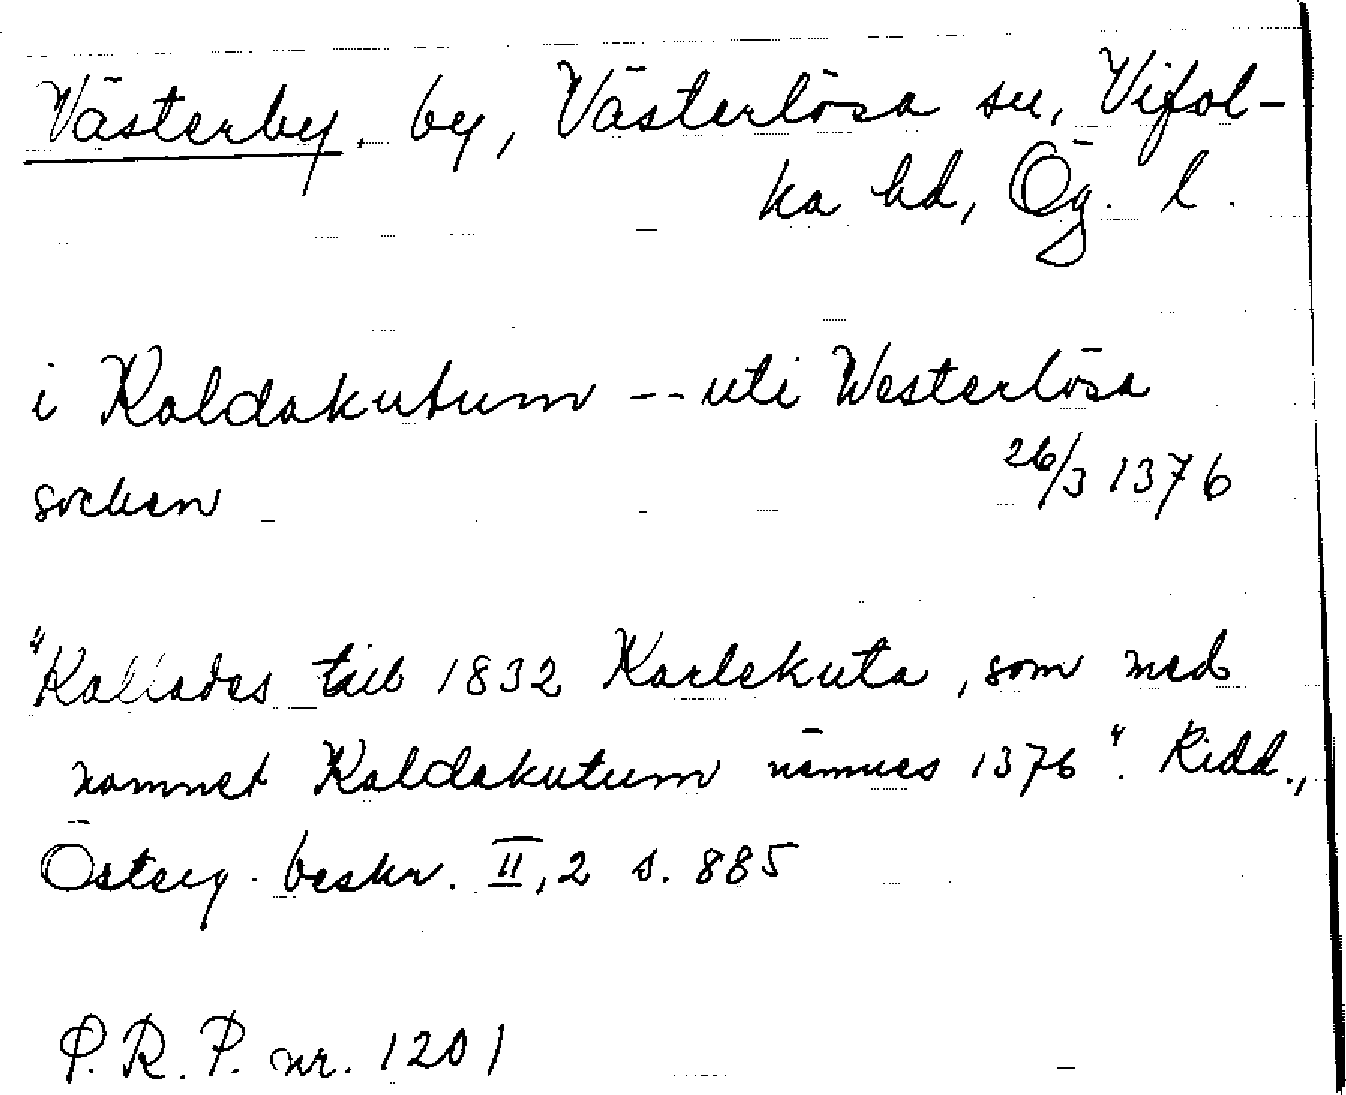 Västerby, by, Västerlösa sn, Vifol-
ka hd, Ög. l.
i Kaldakutum -- uti Westerlösa
socken 26/3 1376
"Kallades till 1832 Karlekuta, som med
namnet Kaldakutum nämnes 1376". Ridd.,
Österg. beskr. II,2 s. 885
P.R.P. nr. 1201